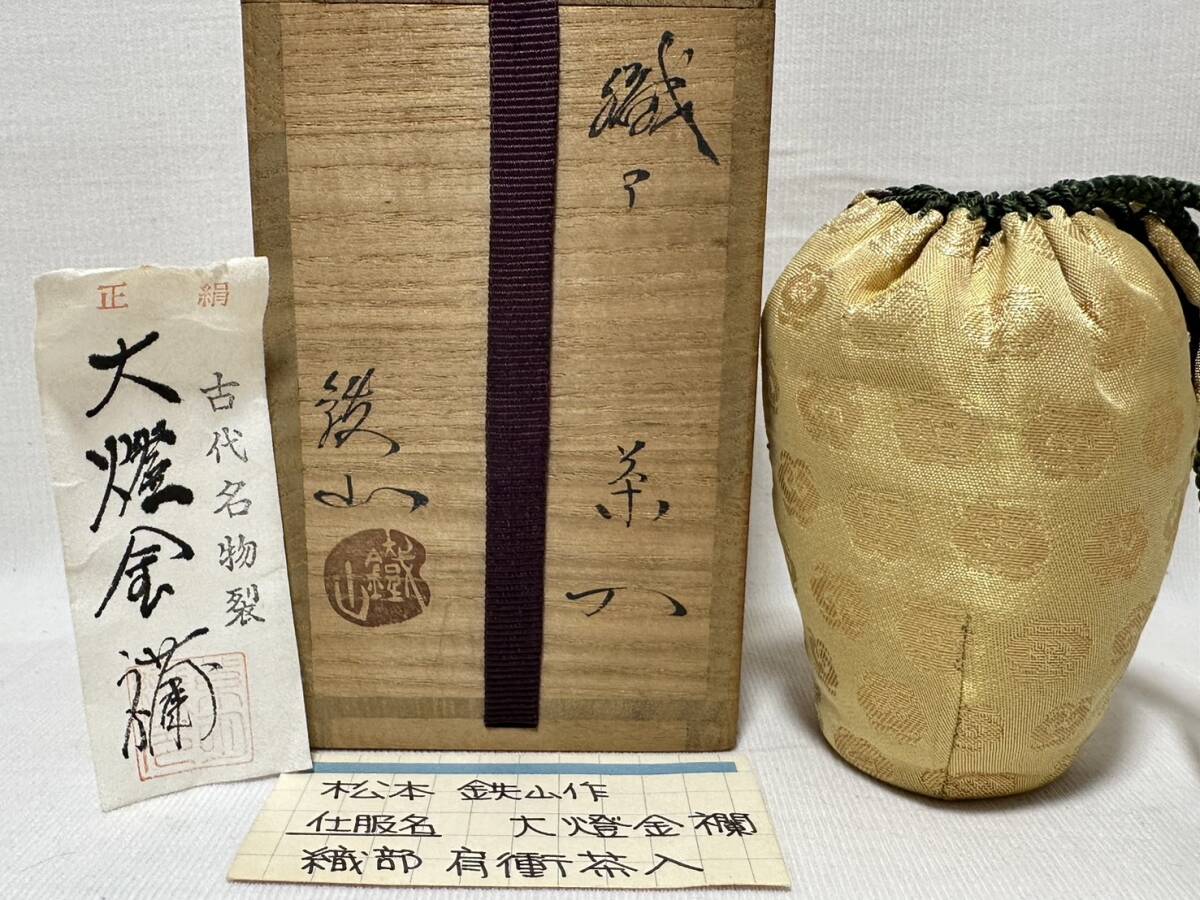 織ア 茶入
鉄山
鐵山
正絹
古代名物裂
大燈金襴
松本 鉄山作
仕服名 大燈金襴
織部 肩衝茶入